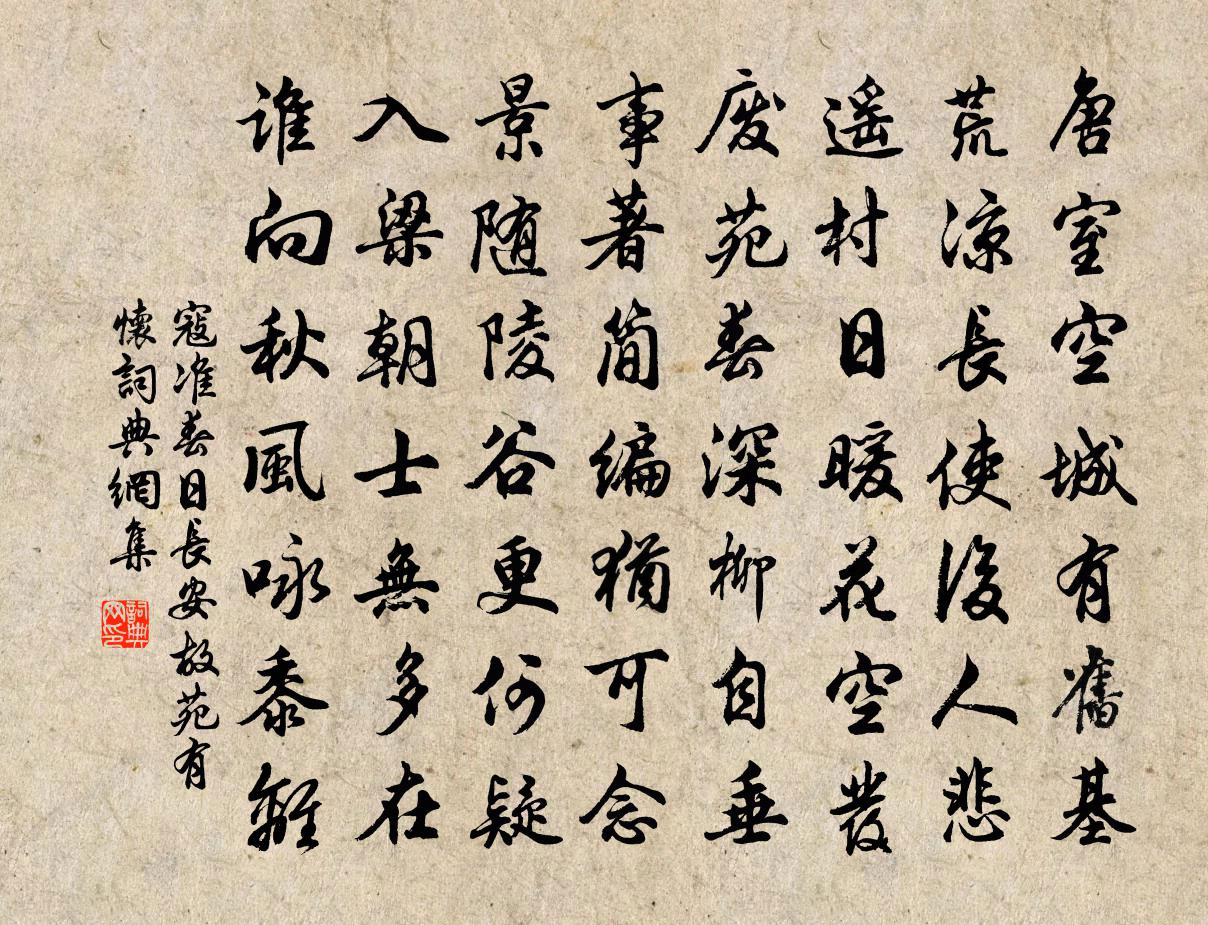 唐室空城有舊基
荒涼長使後人悲
遥村日暖花空發
废苑春深柳自垂
事著简编猶可念
景随陵谷更何疑
入梁朝士無多在
谁向秋風咏黍離
寇准春日長安故苑有
懷詞典網集
詞典
网印